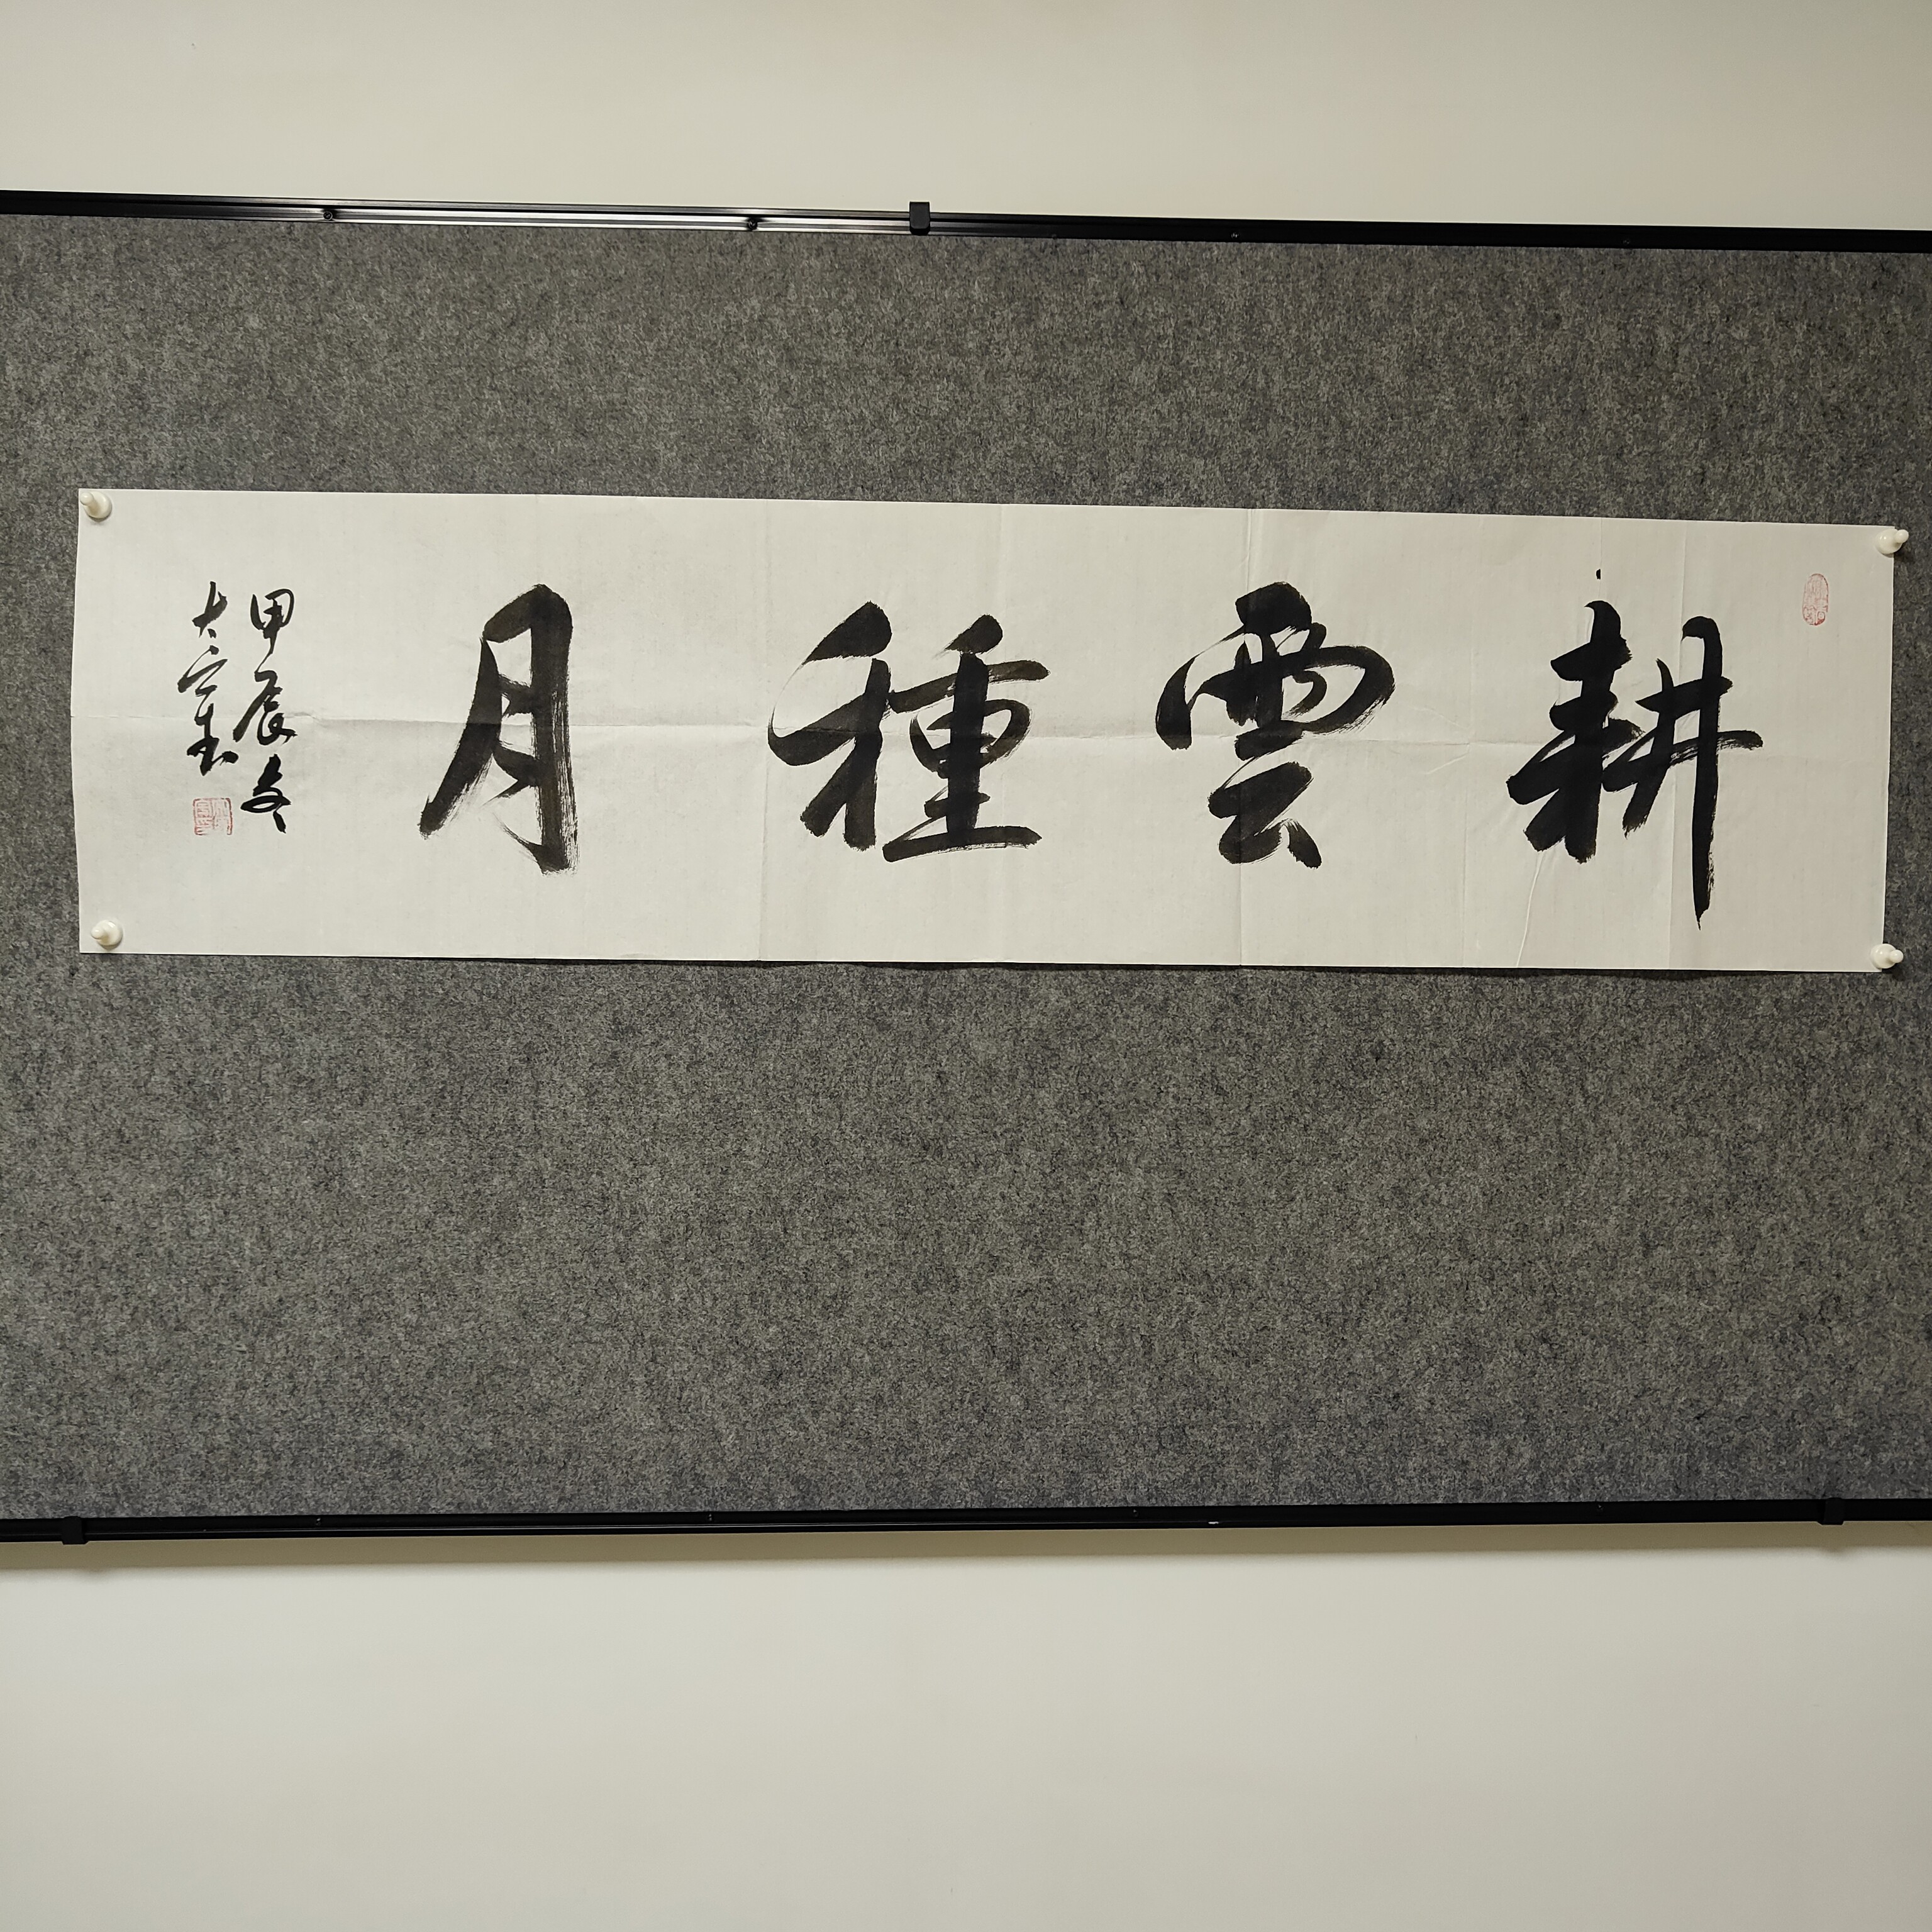 耕雲種月
甲辰冬
大